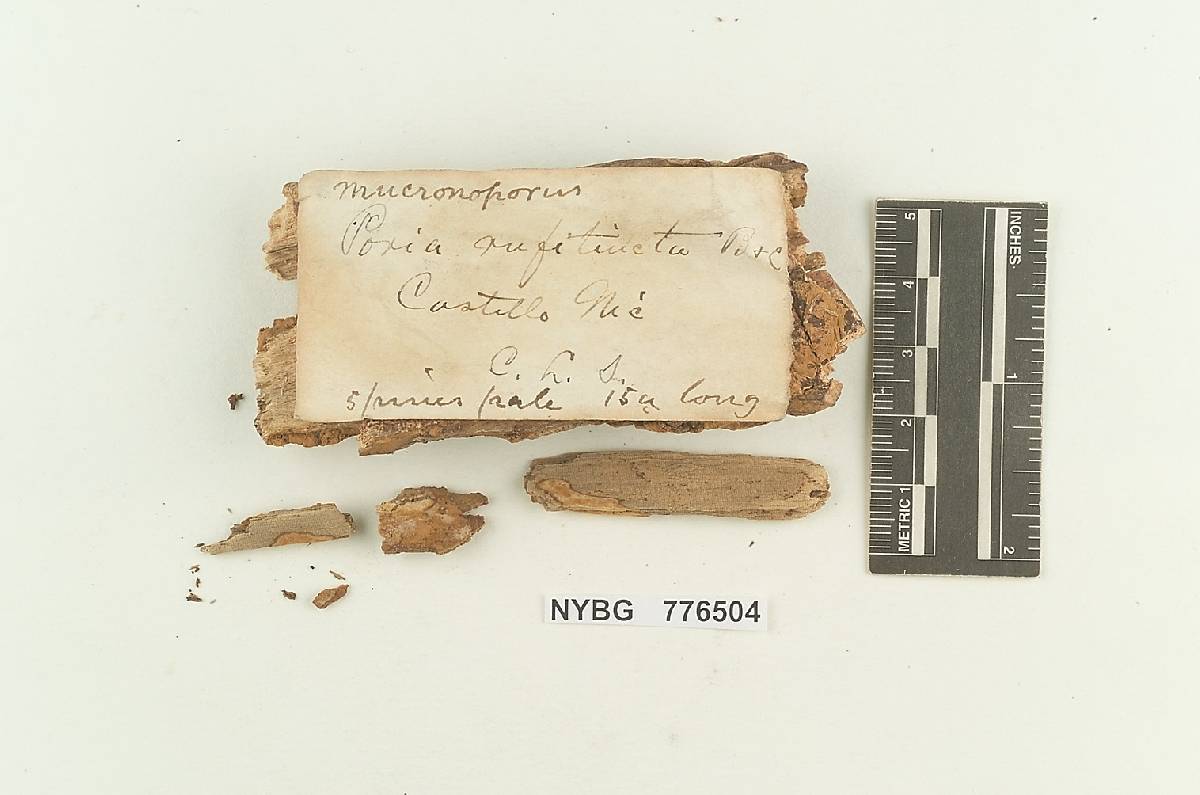 mucronoporus
Poria rufitincta B&C
Castillo Nic
C. L. S.
Spines pale 15u long
NYBG 776504
INCHES
1
2
5
4
3
2
METRIC 1